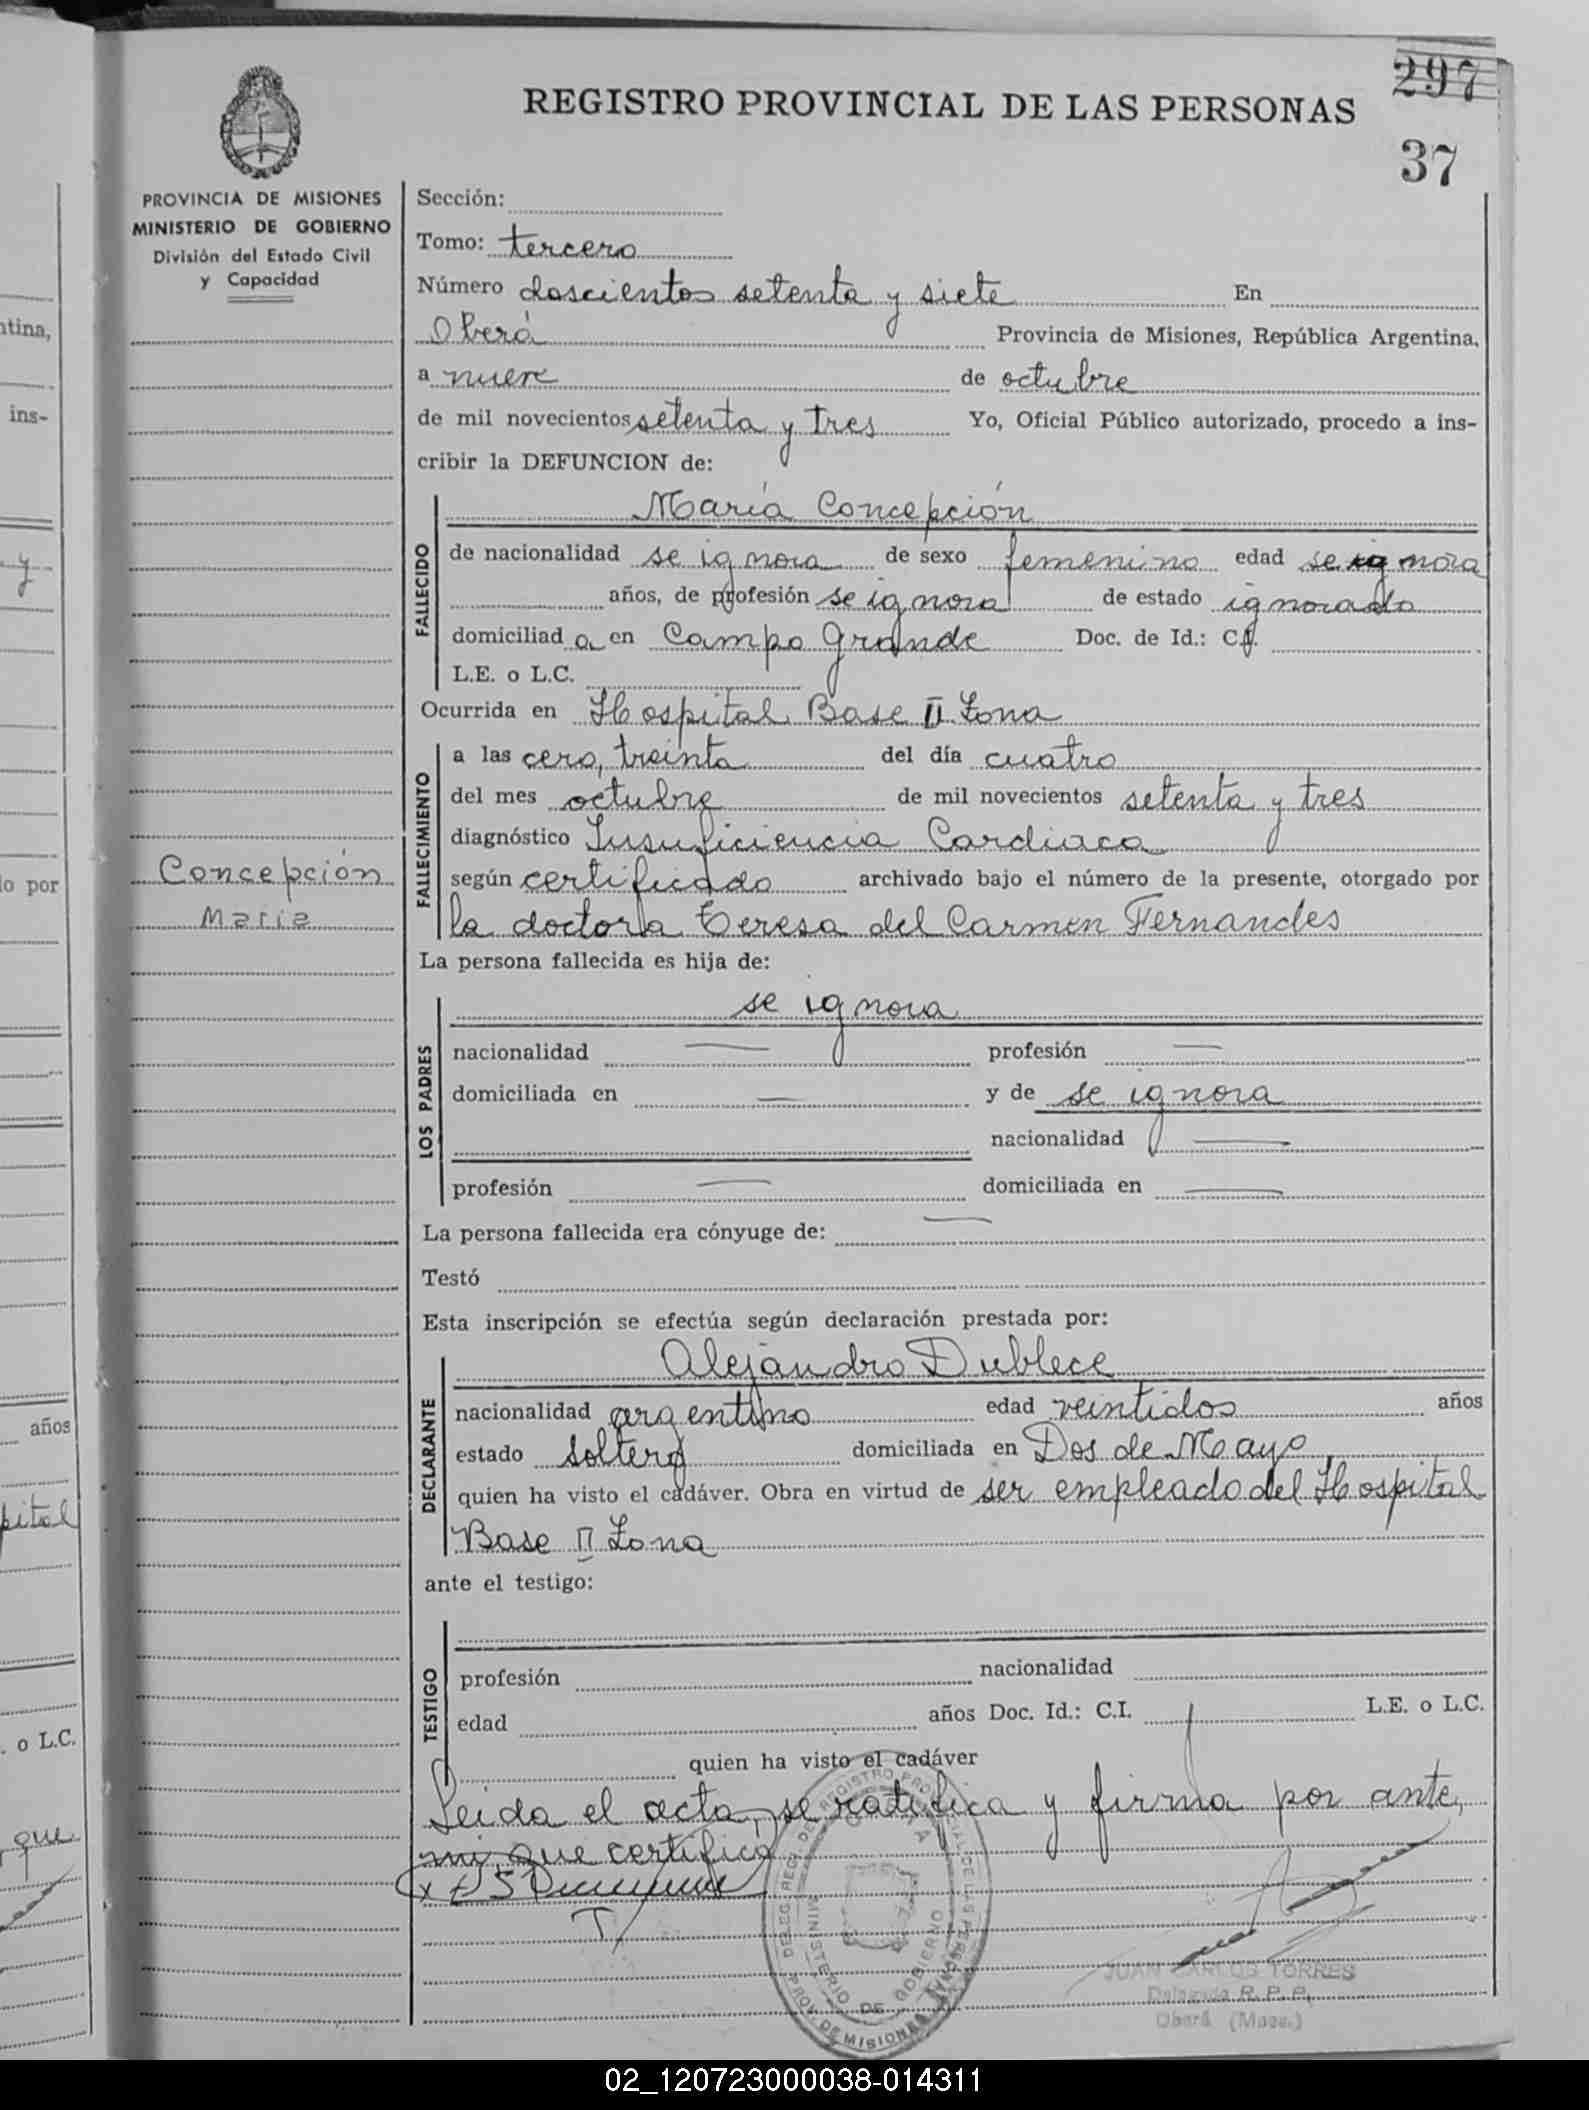 297
REGISTRO PROVINCIAL DE LAS PERSONAS
37
PROVINCIA DE MISIONES
MINISTERIO DE GOBIERNO
División del Estado Civil
y Capacidad
Sección:
Tomo: tercero
Número doscientos setenta y siete En
Oberá Provincia de Misiones, República Argentina,
a nueve de octubre
de mil novecientos setenta y tres Yo, Oficial Público autorizado, procedo a ins-
cribir la DEFUNCION de:
María Concepción
FALLECIDO
de nacionalidad se ignora de sexo femenino edad se ignora
años, de profesión se ignora de estado ignorado
domiciliad a en Campo Grande Doc. de Id.: C.I.
L.E. o L.C.
Ocurrida en Hospital Base II Zona
FALLECIMIENTO
a las cero, treinta del día cuatro
del mes octubre de mil novecientos setenta y tres
diagnóstico Insuficiencia Cardiaca
según certificado archivado bajo el número de la presente, otorgado por
la doctora Teresa del Carmen Fernandes
Concepción
Maria
La persona fallecida es hija de:
se ignora
LOS PADRES
nacionalidad — profesión —
domiciliada en — y de se ignora
nacionalidad —
profesión — domiciliada en —
La persona fallecida era cónyuge de: —
Testó
Esta inscripción se efectúa según declaración prestada por:
Alejandro Dublece
DECLARANTE
nacionalidad argentino edad veintidos años
estado soltero domiciliada en Dos de Mayo
quien ha visto el cadáver. Obra en virtud de ser empleado del Hospital
Base II Zona
ante el testigo:
TESTIGO
profesión nacionalidad
edad años Doc. Id.: C.I. L.E. o L.C.
quien ha visto el cadáver
Leida el acta, se ratifica y firma por ante,
mi, que certifico
JUAN CARLOS TORRES
Delegado R. P. P.
Oberá (Mnes.)
tina,
ins-
y
lo por
años
pital
. o L.C.
que
02_120723000038-014311